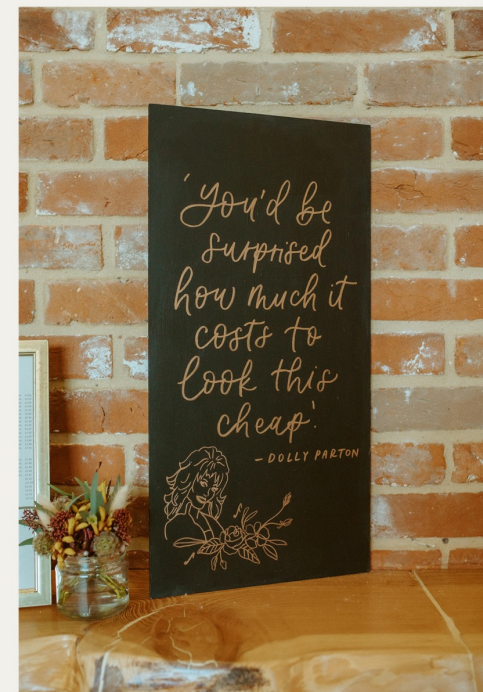 'you'd be
surprised
how much it
costs to
look this
cheap'
- DOLLY PARTON